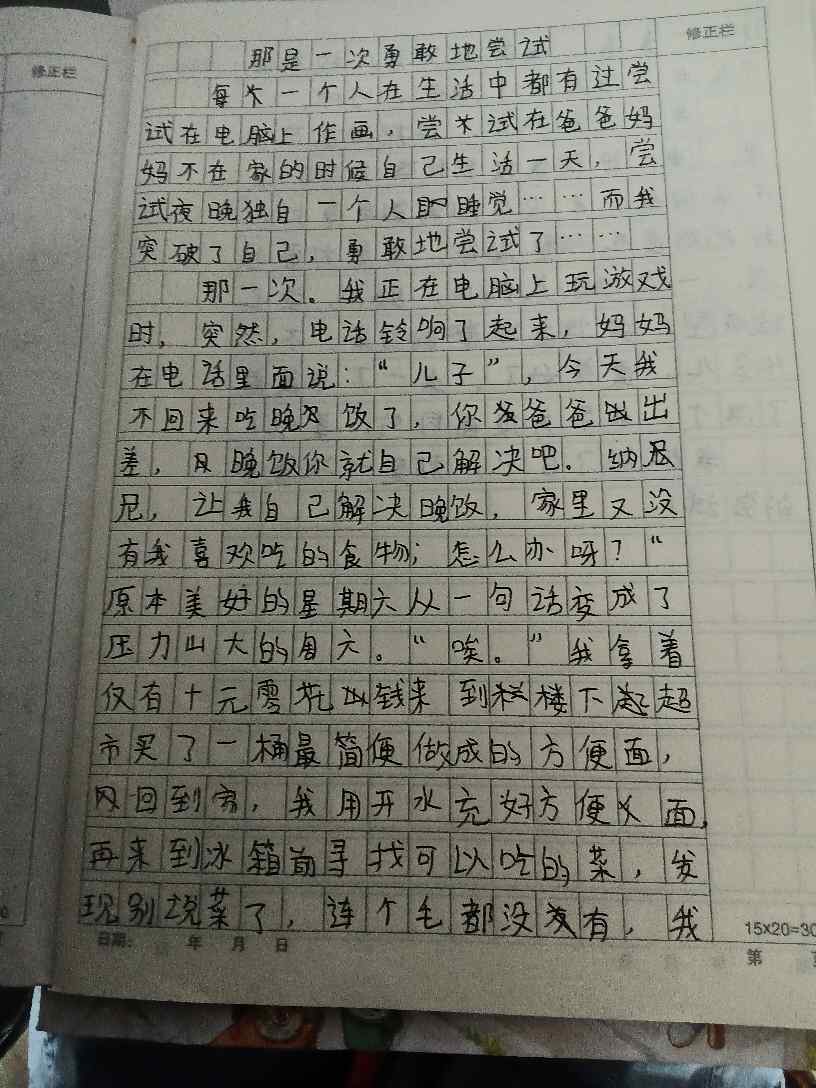 修正栏
修正栏
那是一次勇敢地尝试
每一个人在生活中都有过尝
试在电脑上作画，尝试在爸爸妈
妈不在家的时候自己生活一天，尝
试夜晚独自一个人睡觉……而我
突破了自己，勇敢地尝试了……
那一次。我正在电脑上玩游戏
时，突然，电话铃响了起来，妈妈
在电话里面说：“儿子”，今天我
不回来吃晚饭了，你爸爸出
差，晚饭你就自己解决吧。纳尼
尼，让我自己解决晚饭，家里又没
有我喜欢吃的食物；怎么办呀？“
原本美好的星期六从一句话变成了
压力山大的周六。“唉。”我拿着
仅有十元零花钱来到楼下超
市买了一桶最简便做成的方便面，
回到家，我用开水充好方便面，
再来到冰箱前寻找可以吃的菜，发
现别说菜了，连个毛都没有，我
日期： 年 月 日
15×20=30
第